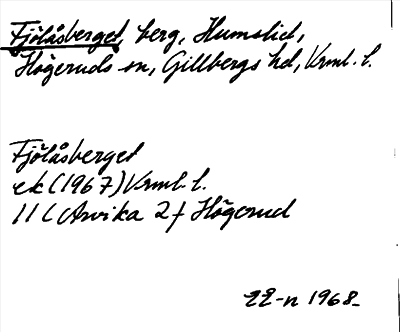 Fjölåsberget, berg, Humslid,
Högeruds sn, Gillbergs hd, Vrml. l.
Fjölåsberget
ek (1967) Vrml. l.
11 C Arvika 2 f Högerud
1968